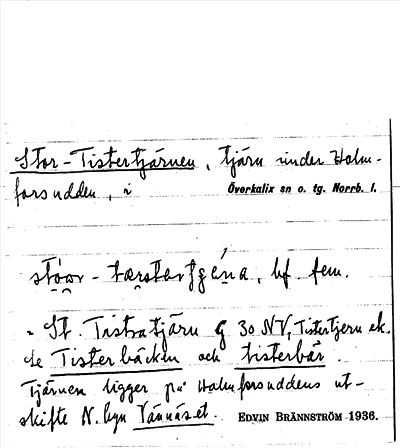 Stor-Tistertjärnen, tjärn under Holm-
forsudden, i Överkalix sn o. tg. Norrb. l.
stóor - tærstertjǝ́na, bf. fem.
St. Tistratjärn G 30 NV, Tistertjern ek.
de Tisterbäcken och tisterbär.
Tjärnen ligger på Holmforsuddens ut-
skifte N. byn Vännäset. EDVIN BRÄNNSTRÖM 1936.